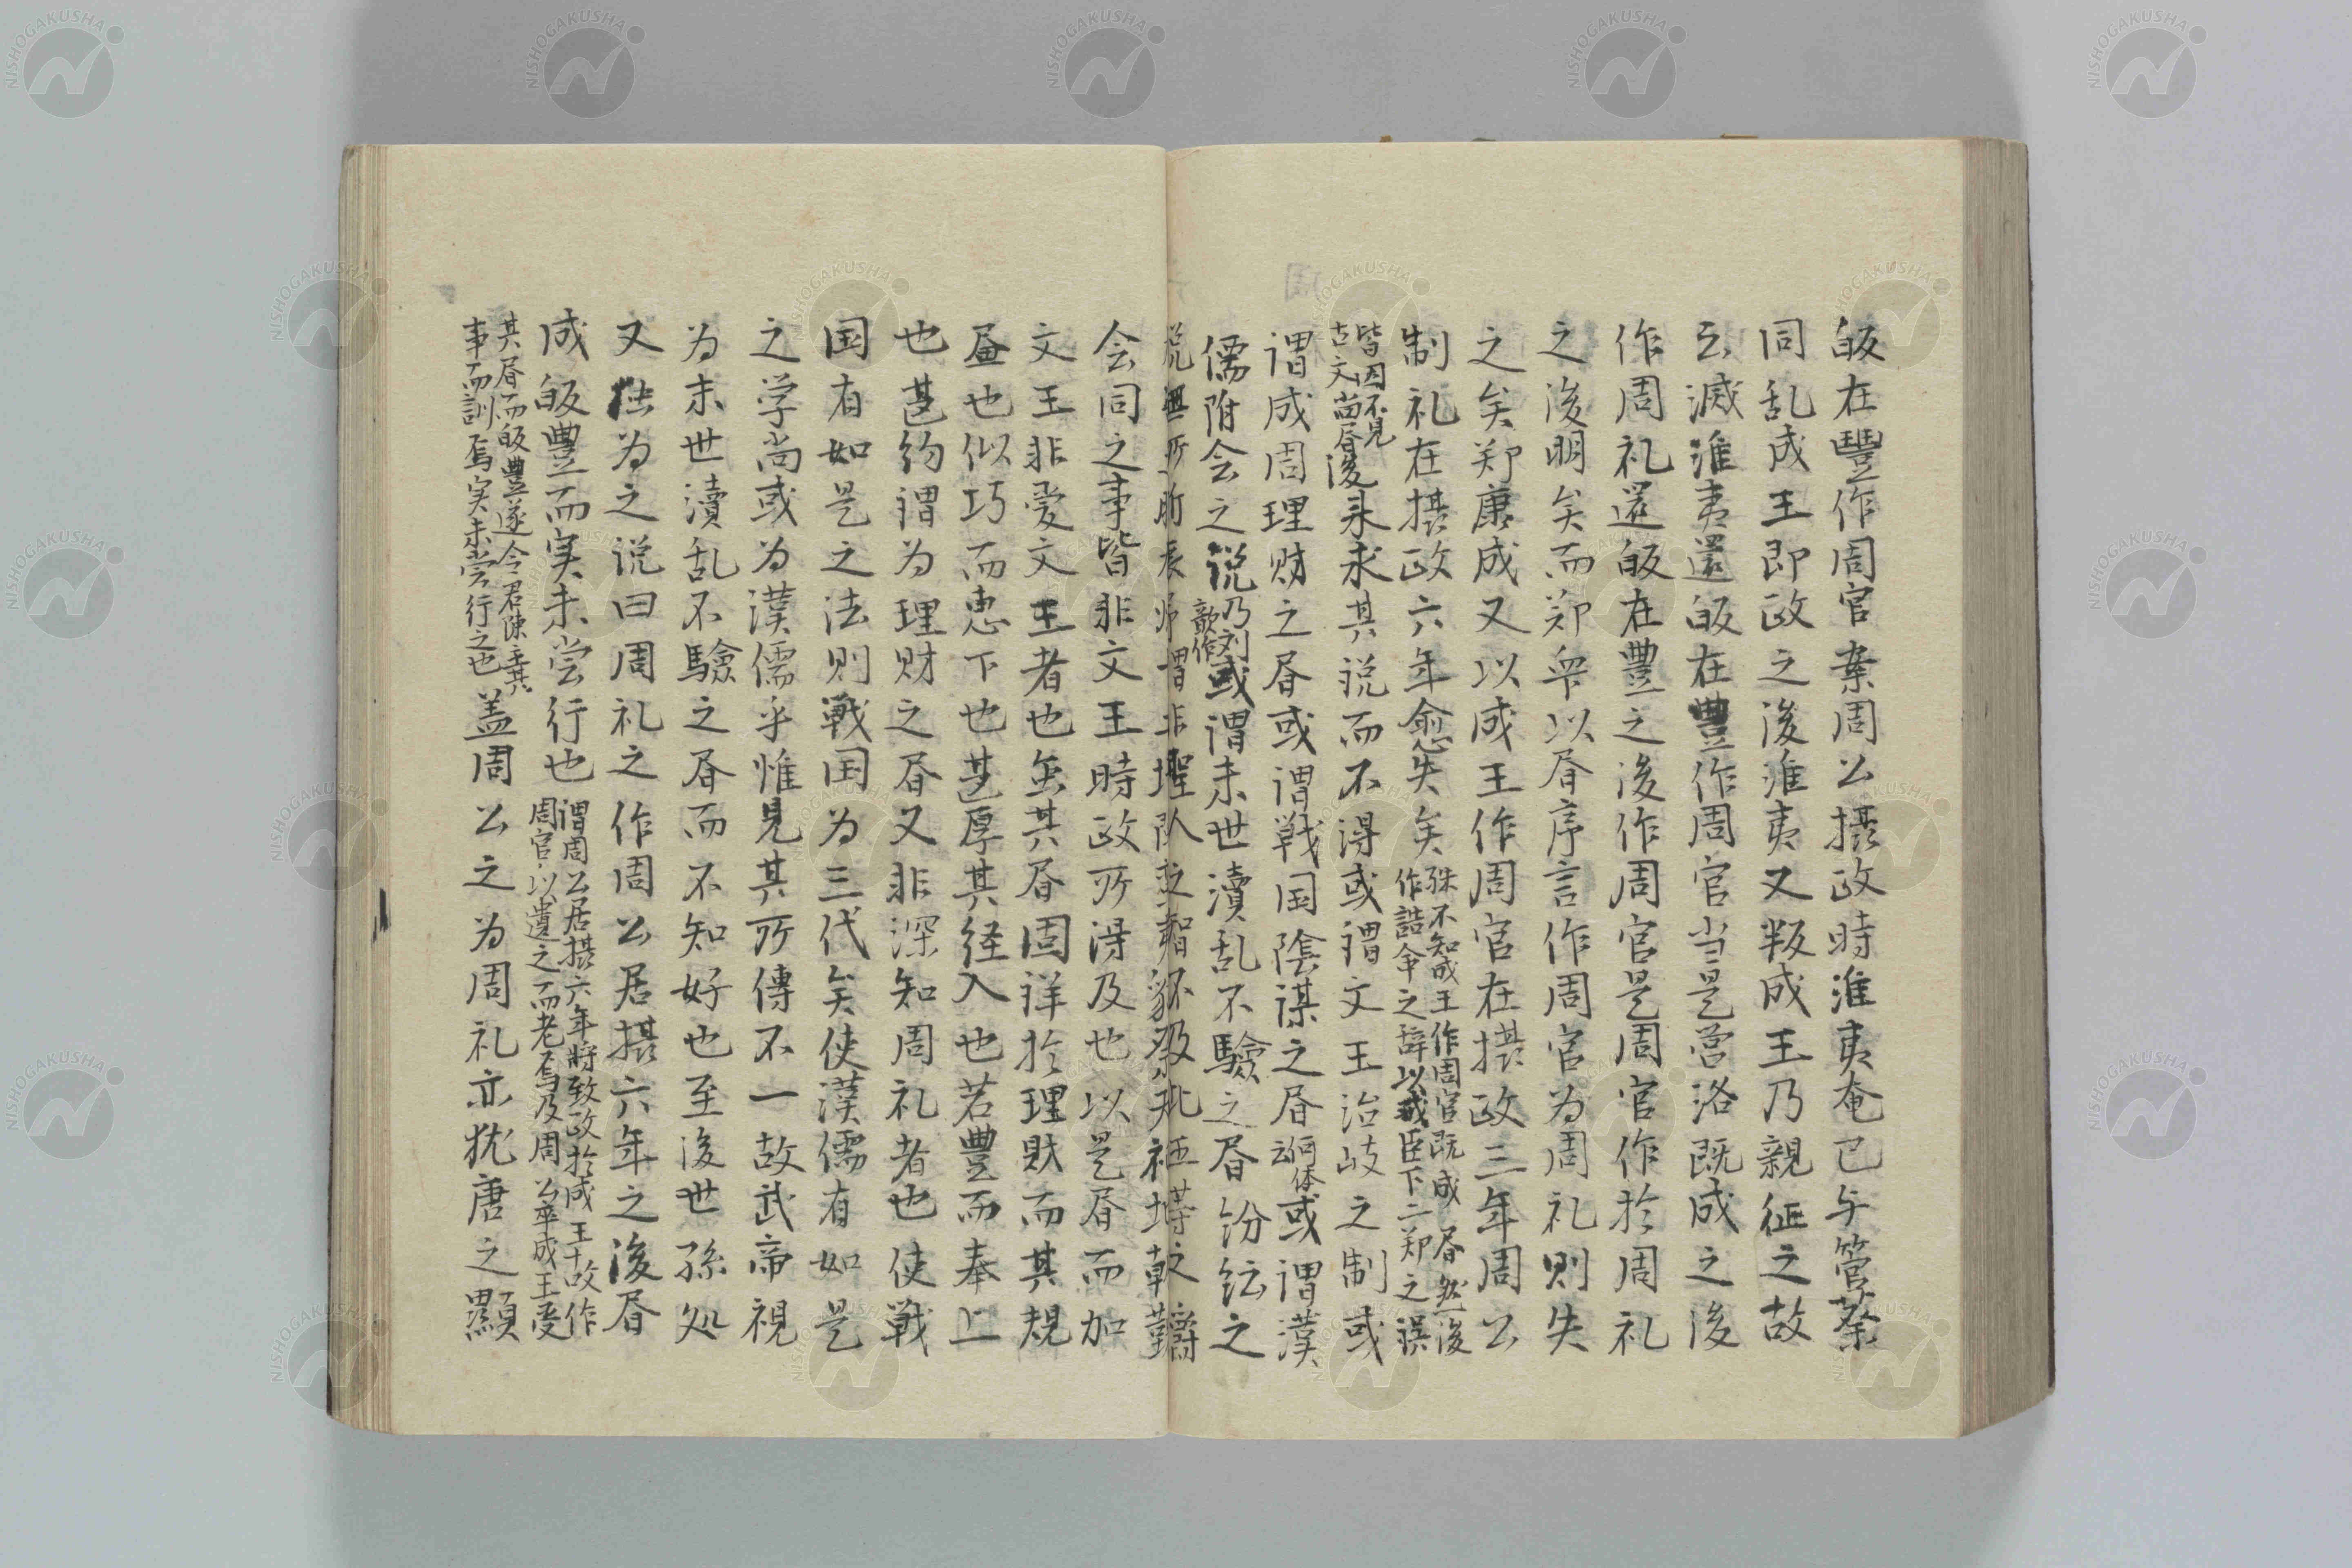 皈在豐作周官案周公摂政時淮夷奄已与管蔡
同乱成王即政之後淮夷又叛成王乃親征之故
云滅淮夷還皈在豊作周官当是営洛既成之後
作周礼還皈在豊之後作周官是周官作於周礼
之後明矣而郑衆以昏序言作周官為周礼則失
之矣郑康成又以成王作周官在摂政三年周公
制礼在摂政六年愈失矣殊不知成王作周官既成昏然後
作誥命之辞以戒臣下二郑之誤
皆因不見
古文尚昏後来求其説而不得或謂文王治岐之制或
謂成周理财之昏或謂戦国陰謀之昏何休云或謂漢
儒附会之説乃刘歆作或謂末世瀆乱不驗之昏纷紜之
説無所
会同之事皆非文王時政所得及也以是昏而加
文王非愛文王者也虽其昏固詳於理財而其規
画也似巧而恵下也甚厚其经入也若豊而奉上
也甚約謂為理财之昏又非深知周礼者也使戦
国有如是之法則戦国为三代矣使漢儒有如是
之学尚或为漢儒乎惟見其所傳不一故武帝視
为末世瀆乱不驗之昏而不知好也至後世孫処
又独为之说曰周礼之作周公居摂六年之後昏
成皈豊而実未尝行也謂周公居摂六年将致政於成王十㕝作
周官以遺之而老焉及周公卒成王受
其昏而皈豊遂令君陳主其
事而訓焉実未尝行之也盖周公之为周礼亦犹唐之顯
NISHOGAKUSHA